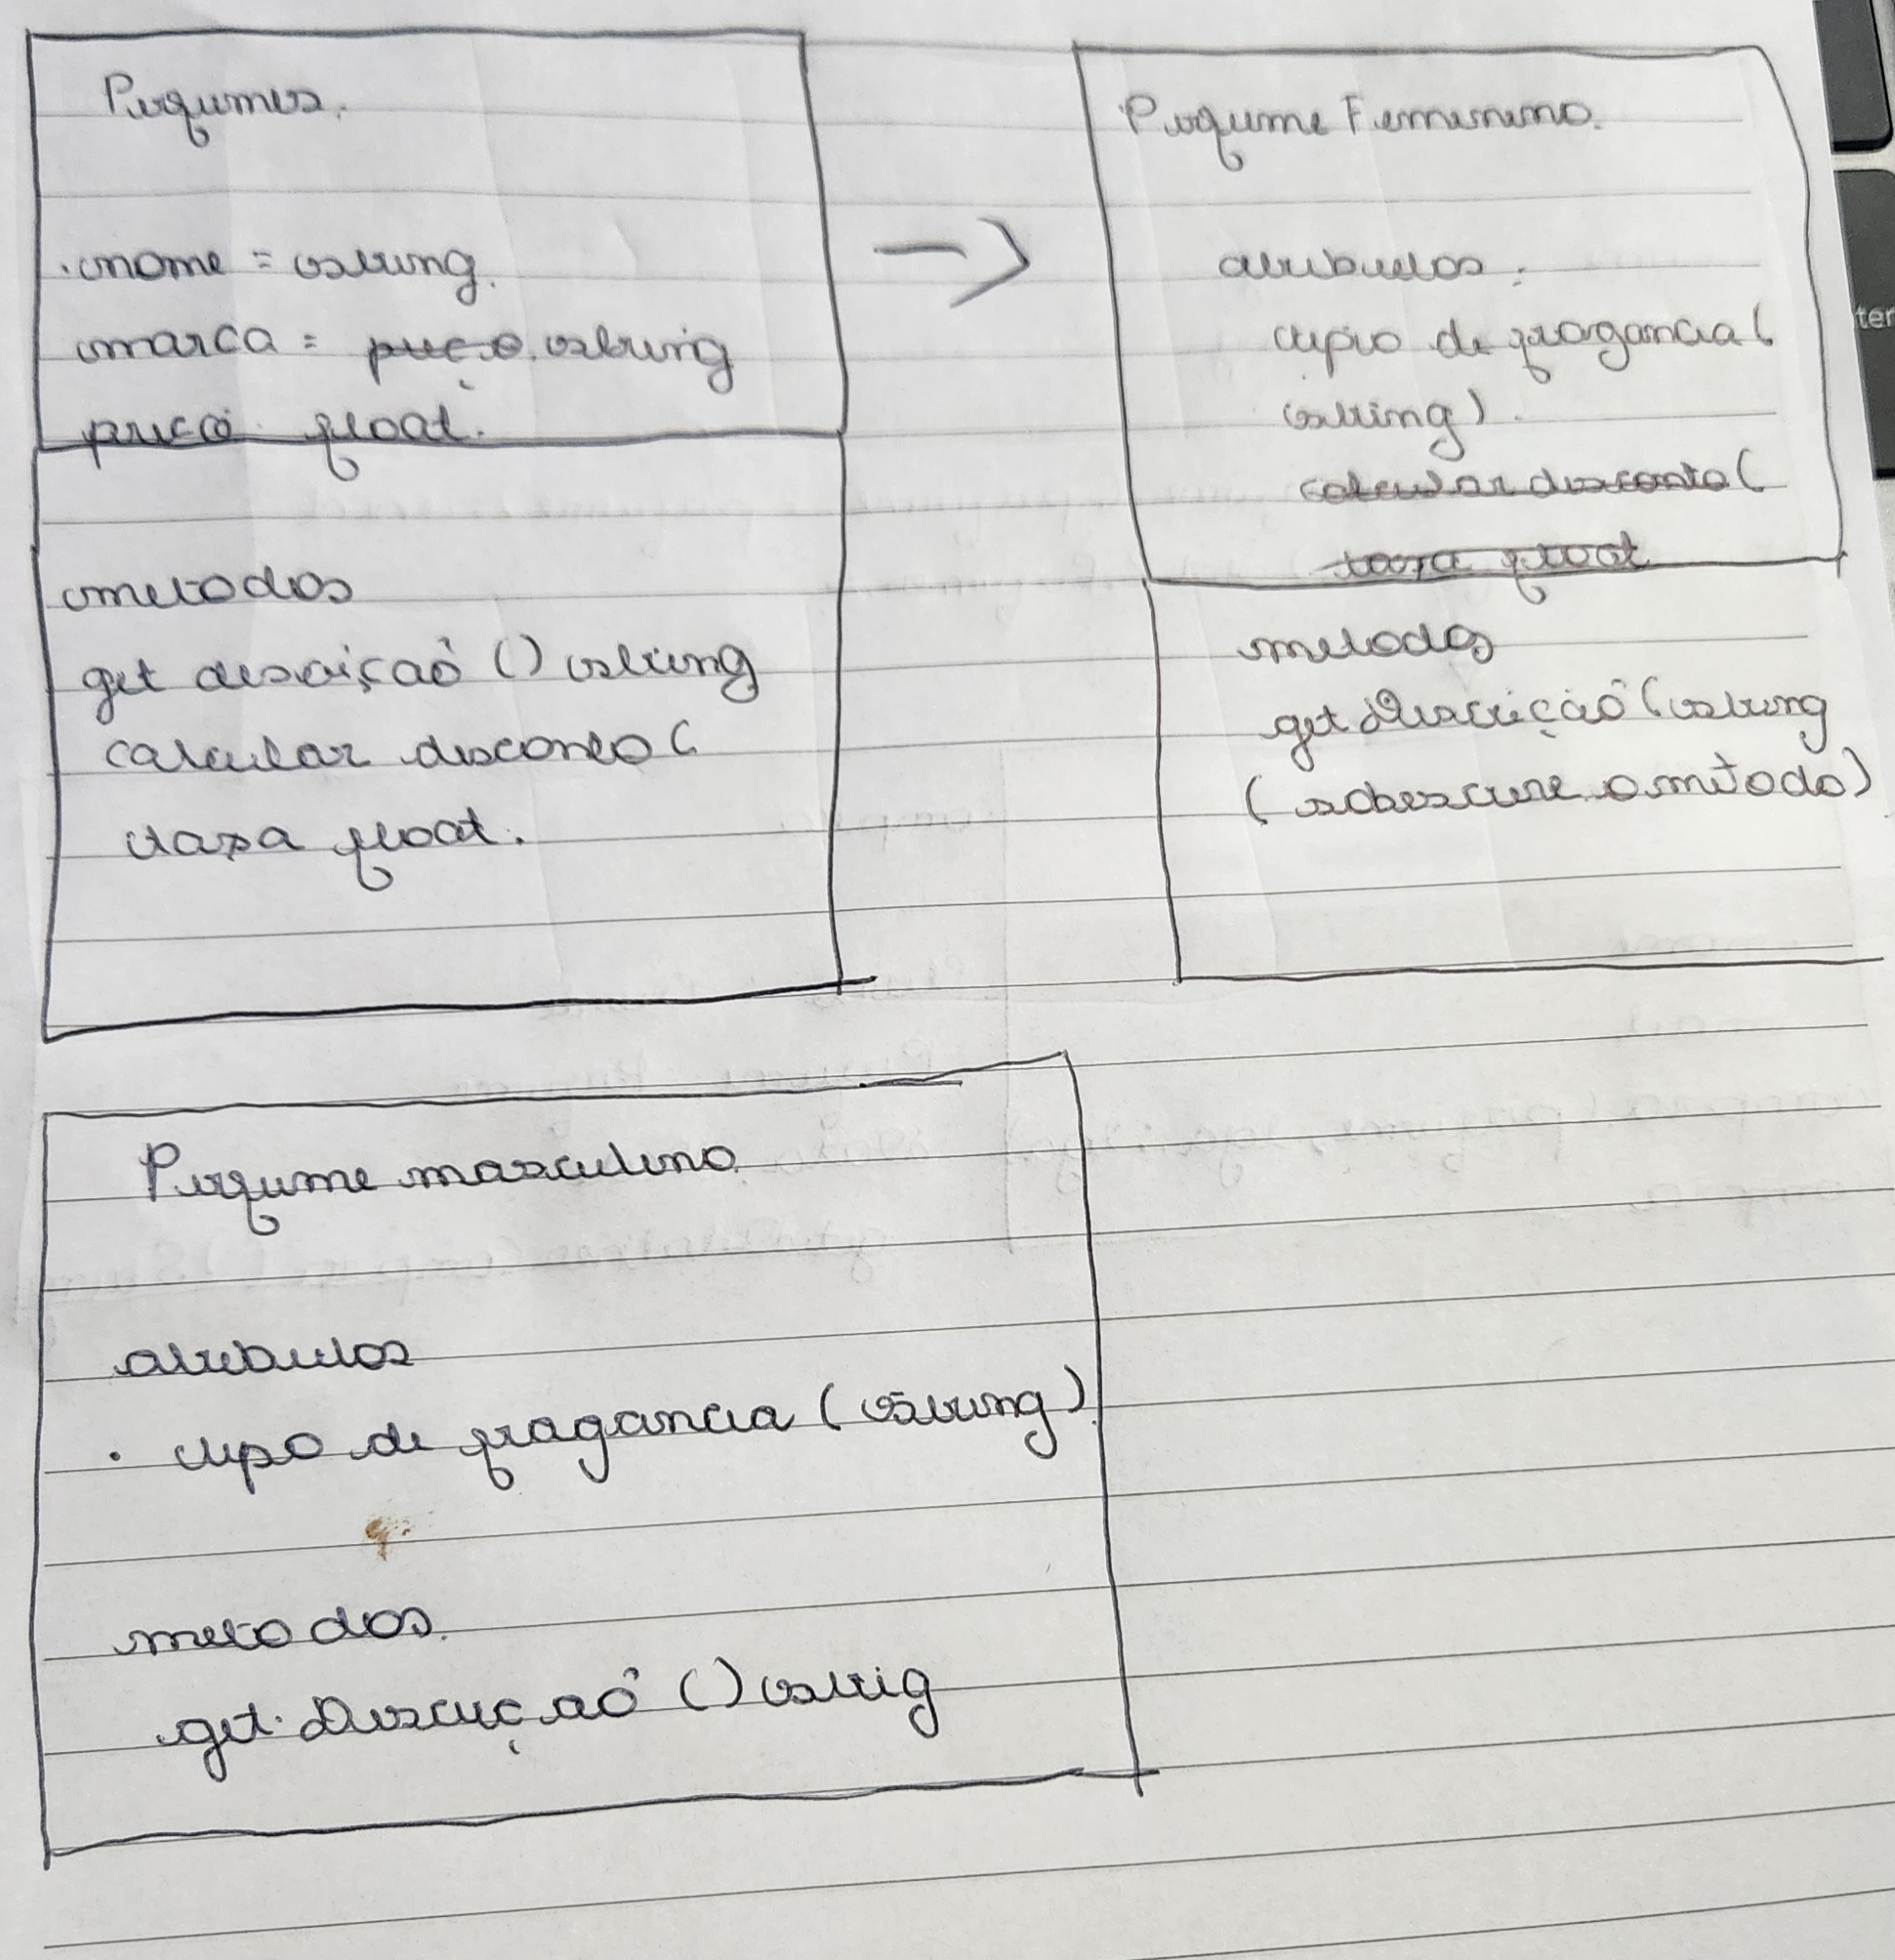 Perfumes.
.nome = string.
marca = preço string
preço float.
metodos
get descriçaõ () string
calcular desconto (
taxa float.
Perfume Feminino.
atributos:
tipio de fragancia (
string).
calcular desconto (
taxa float
metodos
getDescrição (string
(sobescreve o método)
Perfume masculino.
atributos
. tipo de fragancia (string).
metodos.
get. Descriçaõ () strig
ter